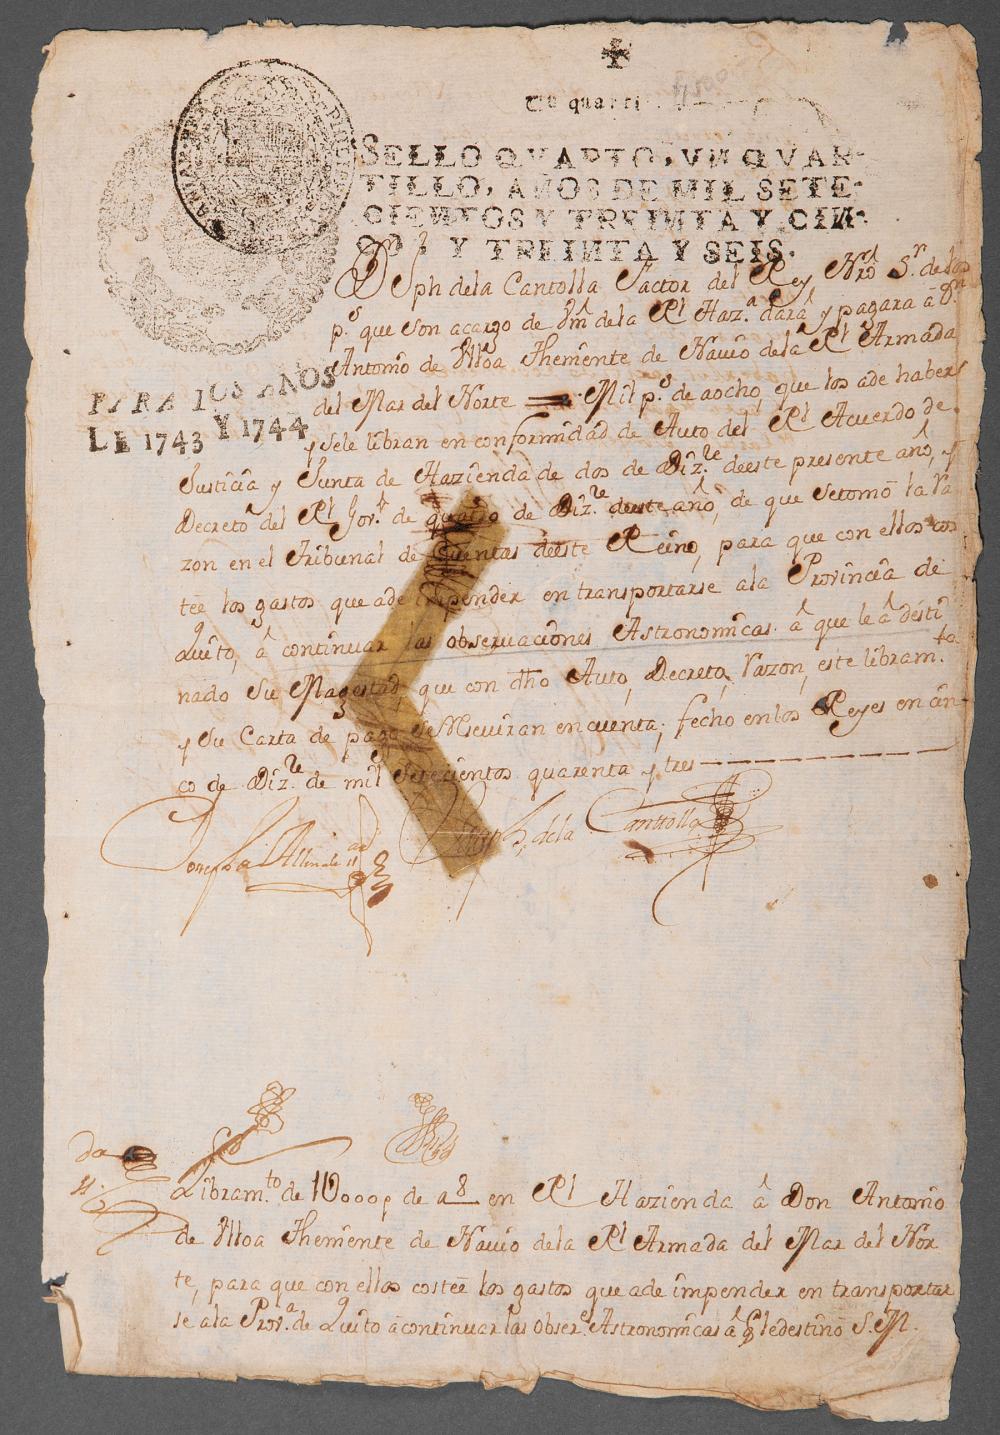 Un quarti
SELLO QVARTO, VN QVAR-
TILLO, AÑOS DE MIL SETE-
CIENTOS Y TREINTA Y CIN-
CO, Y TREINTA Y SEIS.
PARA LOS AÑOS
DE 1743 Y 1744
Dn Jph dela Cantolla Factor del Rey Nrō Sr. de los
ps. que son acargo de Vm̄ dela Rl Haza. dará y pagara â Dn
Antonio de Vlloa Theniente de Nauio dela Rl Armada
del Mar del Norte Mil ps. de aocho, que los ade haber
y sele libran en conformidad de Auto del Rl Acuerdo de
Justicia y Junta de Hazienda de dos de Dizre. deeste presente año, y
Decreto del Rl Gov. de quatro de Dizre. deeste año, de que se tomô la ra
zon en el Tribunal de Cuentas deeste Reino, para que con ellos cos
teê los gastos que ade impender en transportarse ala Provincia de
Quito, â continuar las observaciones Astronomicas â que le â desti
nado Su Magestad, que con dhō Auto, Decreto, razon, este libramto.
y Su Carta de pago se reciviran en cuenta; fecho en los Reyes en cin
co de Dizre. de mil Setecientos quarenta y tres
Joseph dela Canttolla
Libramto. de 1U000p de a8 en Rl Hazienda â Don Antonio
de Vlloa Theniente de Nauio dela Rl Armada del Mar del Nor
te, para que con ellos costeê los gastos que ade impender en transportar
se ala Prova. de Quito â continuar las obsere. Astronomicas â q̄ le destinô S. M.